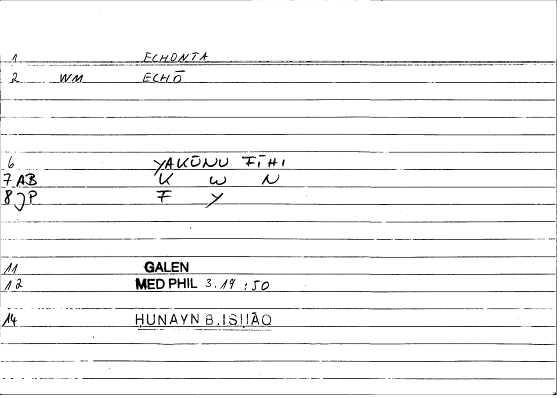 1 ECHONTA
2 WM ECHŌ
6 YAKŪNU FĪHI
7 AB K W N
8 JP F Y
11 GALEN
12 MED PHIL 3.19 :50
14 HUNAYN B.ISḤĀQ